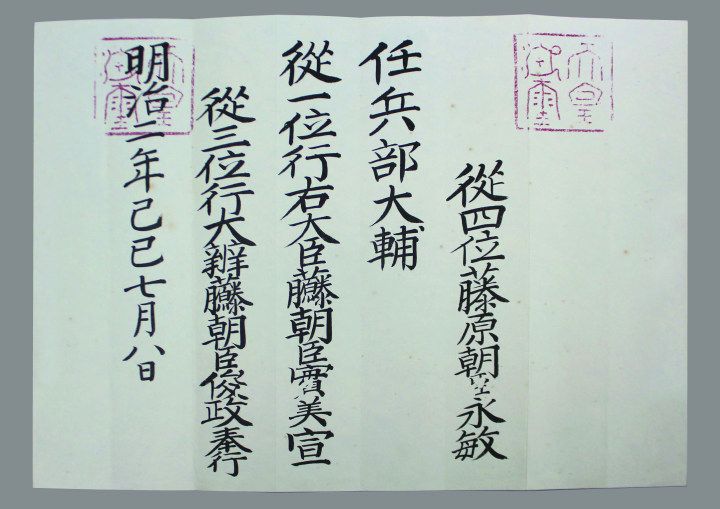 天皇御璽
從四位藤原朝臣永敏
任兵部大輔
從一位行右大臣藤朝臣實美宣
從三位行大辨藤朝臣俊政奉行
明治二年己巳七月八日
天皇御璽